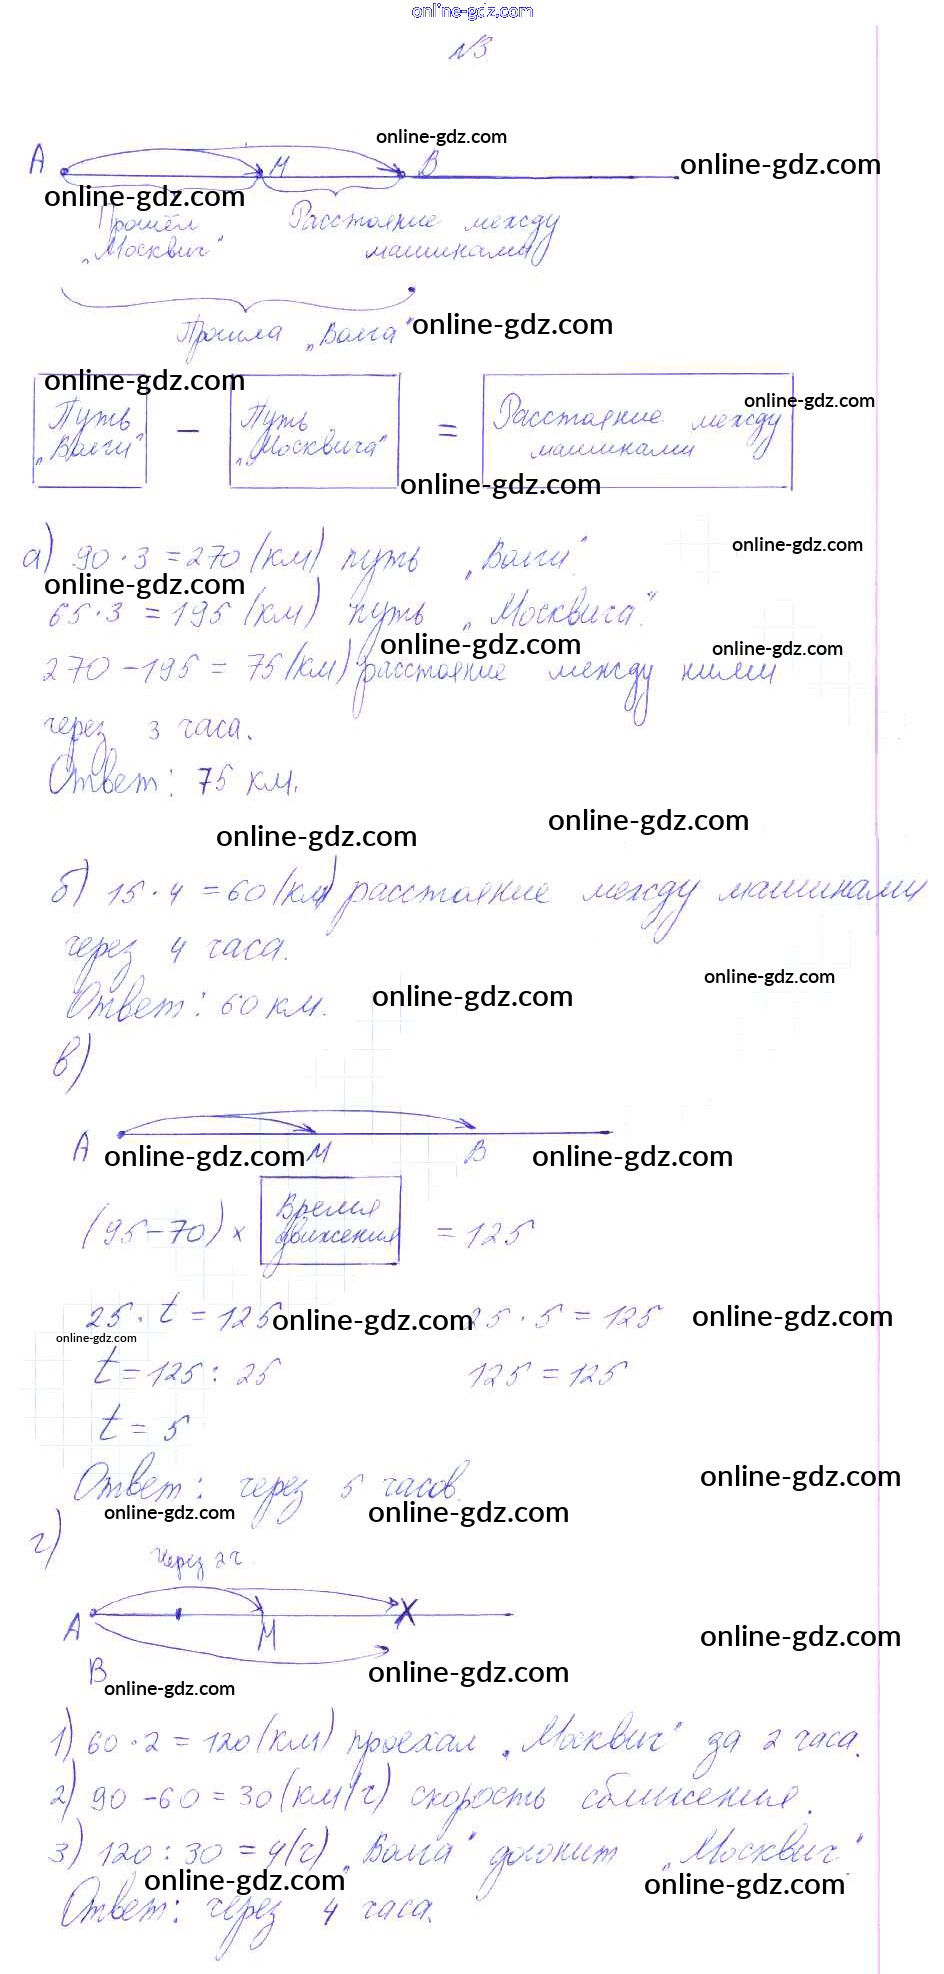 online-gdz.com
№3
online-gdz.com
A M B online-gdz.com
online-gdz.com
Прошёл Расстояние между
„Москвич" машинами
Прошла „Волга" online-gdz.com
online-gdz.com
online-gdz.com
Путь „Волги" − Путь „Москвича" = Расстояние между машинами
online-gdz.com
а) 90·3=270 (км) путь „Волги". online-gdz.com
online-gdz.com
65·3=195 (км) путь „Москвича".
online-gdz.com online-gdz.com
270−195=75 (км) расстояние между ними
через 3 часа.
Ответ: 75 км.
online-gdz.com online-gdz.com
б) 15·4=60 (км) расстояние между машинами
через 4 часа.
online-gdz.com
Ответ: 60 км. online-gdz.com
в)
A M B
online-gdz.com online-gdz.com
(95−70) × Время движения = 125
25·t=125 25·5=125
online-gdz.com online-gdz.com
online-gdz.com
t=125:25 125=125
t=5
Ответ: через 5 часов.
online-gdz.com
online-gdz.com online-gdz.com
г)
Через 2ч.
A M
online-gdz.com
B online-gdz.com
online-gdz.com
1) 60·2=120 (км) проехал „Москвич" за 2 часа.
2) 90−60=30 (км/ч) скорость сближения.
3) 120:30=4 (ч) „Волга" догонит „Москвич"
online-gdz.com online-gdz.com
Ответ: через 4 часа.